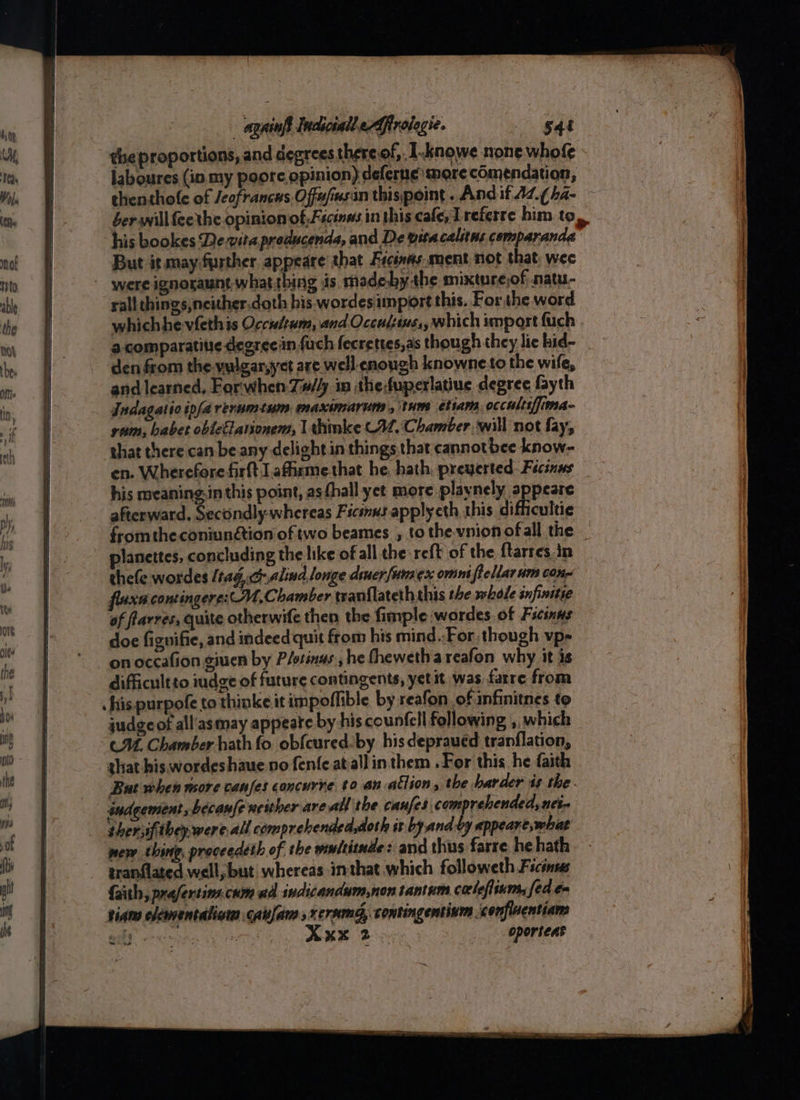 against Iudiciall Astrologie. 541
the proportions, and degrees there of, I knowe none whose
laboures (in my poore opinion) deserue more cōmendation,
then those of Ieofrancus Offusius in this point. And if M. Cha-
ber will see the opinion of Ficinus in this case, I referre him to
his bookes De vita producenda, and De vita cælitus comparanda
But it may further appeare that Ficinus ment not that wee
were ignoraunt what thing is made by the mixture of natu-
rall things, neither doth his wordes import this. For the word
which he vseth is Occultum, and Occultius, which import such
a comparatiue degree in such secrettes, as though they lie hid-
den from the vulgar, yet are well enough knowne to the wise,
and learned. For when Tully in the superlatiue degree sayth
Indagatio ipsa rerum tum maximarum, tum etiam occultissima-
rum, habet oblectationem, I thinke M. Chamber will not say,
that there can be any delight in things that cannot bee know-
en. Wherefore first I affirme that he hath peruerted Ficinus
his meaning in this point, as shall yet more playnely appeare
afterward. Secondly whereas Ficinus applyeth this difficultie
from the coniunction of two beames, to the vnion of all the
planettes, concluding the like of all the rest of the starres in
these wordes Itaq, & aliud longe diuersum ex omni stellarum con-
fluxu contingere: M. Chamber translateth this the whole infinitie
of starres, quite otherwise then the simple wordes of Ficinus
doe signifie, and indeed quit from his mind. For though vp-
on occasion giuen by Plotinus, he sheweth a reason why it is
difficult to iudge of future contingents, yet it was farre from
his purpose to thinke it impossible by reason of infinitnes to
iudge of all as may appeare by his counsell following, which
M. Chamber hath so obscured by his depraued translation,
that his wordes haue no sense at all in them. For this he saith
But when more causes concurre to an action, the harder is the
iudgement, because neither are all the causes comprehended, nei-
ther, if they were all comprehended, doth it by and by appeare, what
new thing, proceedeth of the multitude: and thus farre he hath
translated well, but whereas in that which followeth Ficinus
saith, præsertim cum ad iudicandum, non tantum cœlestium, sed e-
tiam elementalium causam, rerumq, contingentium confluentiam
Xxx 2 oporteat